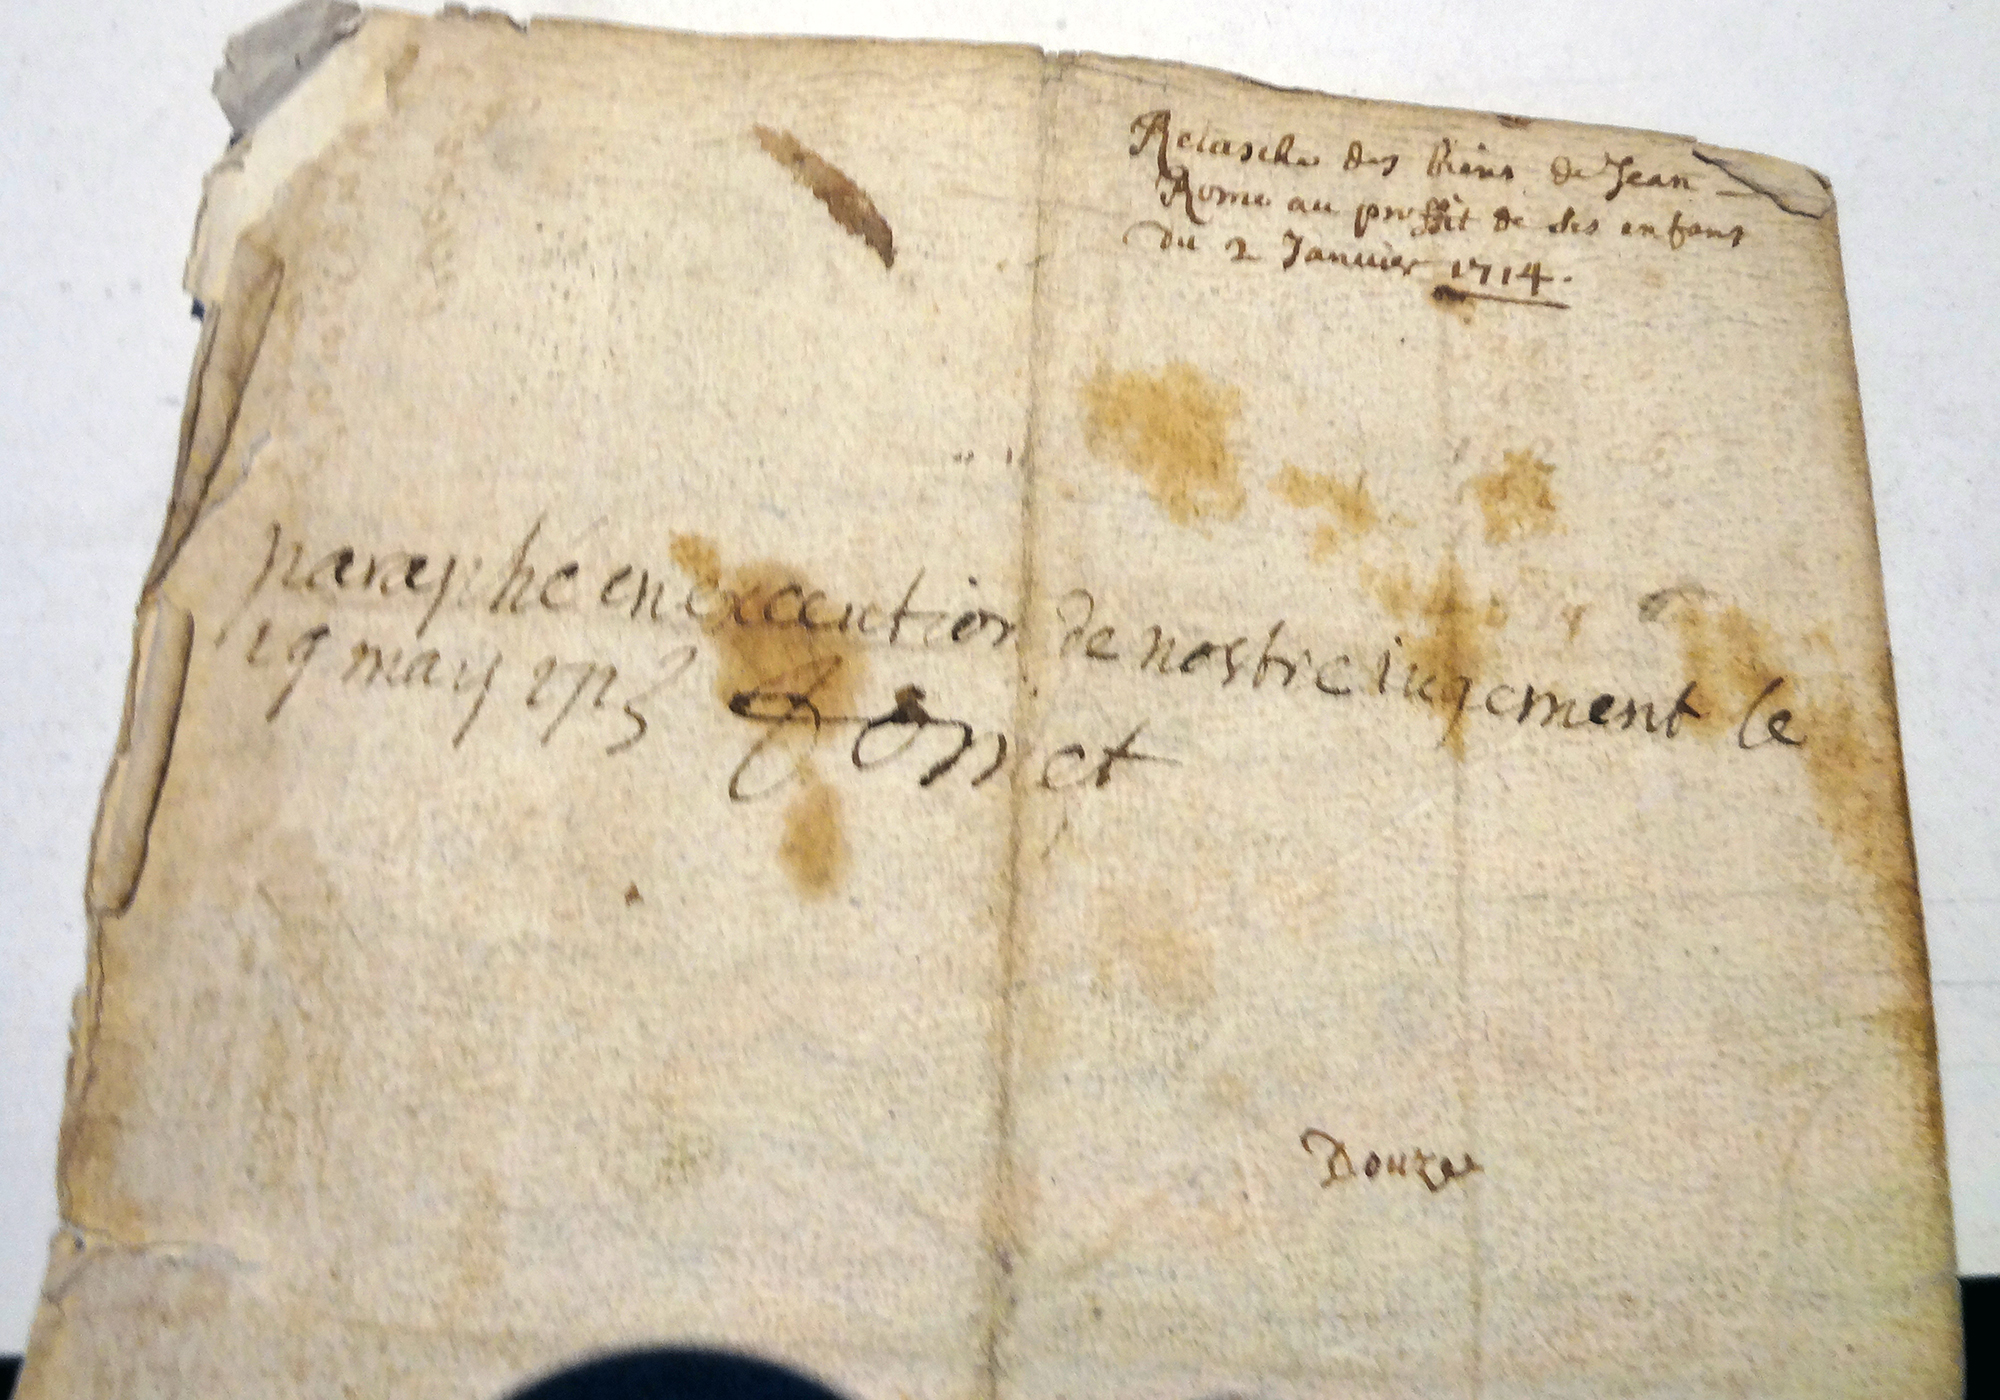 Relasche des biens de Jean
Rome au proffit de ses enfans
du 2 Janvier 1714.
paraphé en execution de nostre iugement le
19 may
Douze